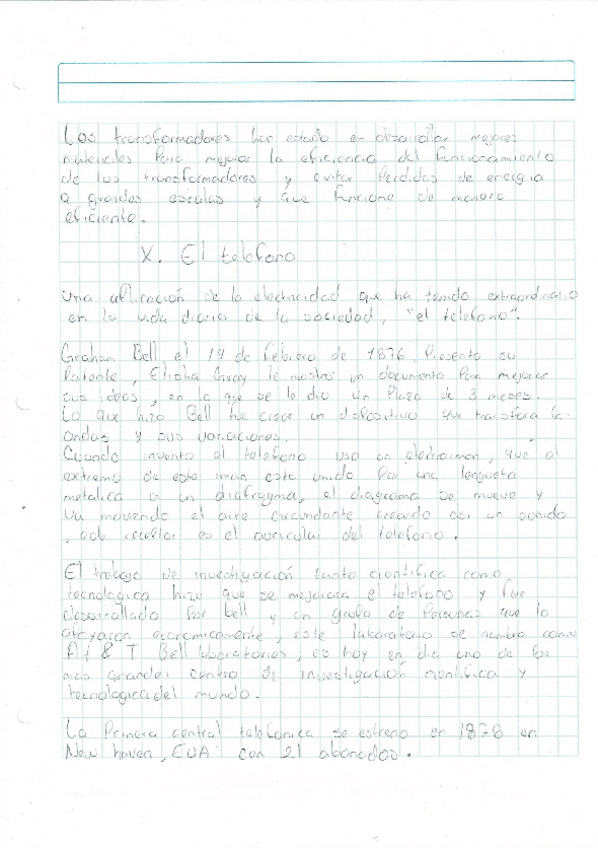 Los transformadores han estado en desarrollar mejores
materiales Para mejorar la eficiencia del funcionamiento
de los transformadores y evitar Perdidas de energia
a grandes escalas y que funcione de manera
eficiente.
X. El telefono
Una aplicación de la electricidad que ha tenido extraordinario
en la vida diaria de la sociedad, "el telefono".
Graham Bell, el 14 de febrero de 1876. Presento su
Patente, Elisha Gray le mostró un documento Para mejorar
sus ideas, en lo que se le dio un Plazo de 3 meses.
Lo que hizo Bell fue crear un dispositivo que
ondas y sus variaciones.
Cuando invento el telefono uso un electroiman, que al
extremo de este iman esta unido Por una lengueta
metalica o un diafragma, el diagrama se mueve y
va moviendo el aire circundante creando asi un sonido
, es el auricular del telefono.
El trabajo de investigación tanto cientifica como
tecnologica hizo que se mejorara el telefono y fue
desarrollado Por bell y un grupo de Personas que lo
apoyaron economicamente, este laboratorio se nombro como
At & T Bell laboratories, es hoy en dia uno de los
mas grandes centro de investigación cientifica y
tecnologica del mundo.
La Primera central telefonica se estreno en 1878 en
New haven, EUA con 21 abonados.